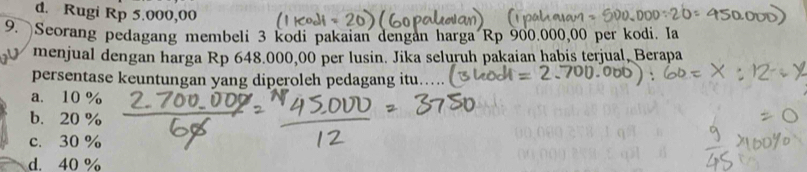 d. Rugi Rp 5.000,00
(1 kodi = 20) (60 pakaian) (1 pakaian = 500.000 : 20 = 450.000)
9. Seorang pedagang membeli 3 kodi pakaian dengan harga Rp 900.000,00 per kodi. Ia
menjual dengan harga Rp 648.000,00 per lusin. Jika seluruh pakaian habis terjual, Berapa
persentase keuntungan yang diperoleh pedagang itu.....
(3 kodi = 2.700.000) : 60 = X : 12 =
a. 10 %
2.700.000 / 60 = 45.000 / 12 = 3750
b. 20 %
= 0
c. 30 %
9/45 x100%
d. 40 %